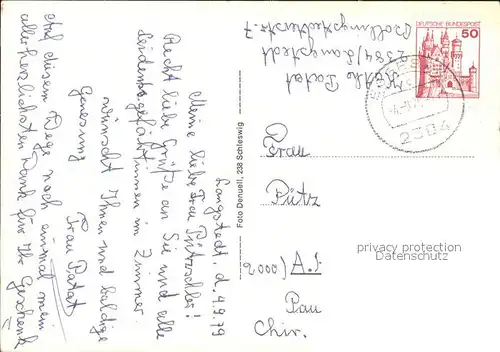 Langstedt, d. 4.9.79
Meine liebe Frau
Recht liebe Grüße an Sie und alle
Leidensgefährtinnen im Zimmer.
wünscht Ihnen und baldige
Genesung
Frau Patat
Auf diesem Wege noch einmal mein
allerherzlichsten Dank für Ihr Geschenk
Foto Denuell, 238 Schleswig
Patat
2384/Langstedt
DEUTSCHE BUNDESPOST
50
Frau
Pütz
Pau
Chir.
privacy protection
Datenschutz